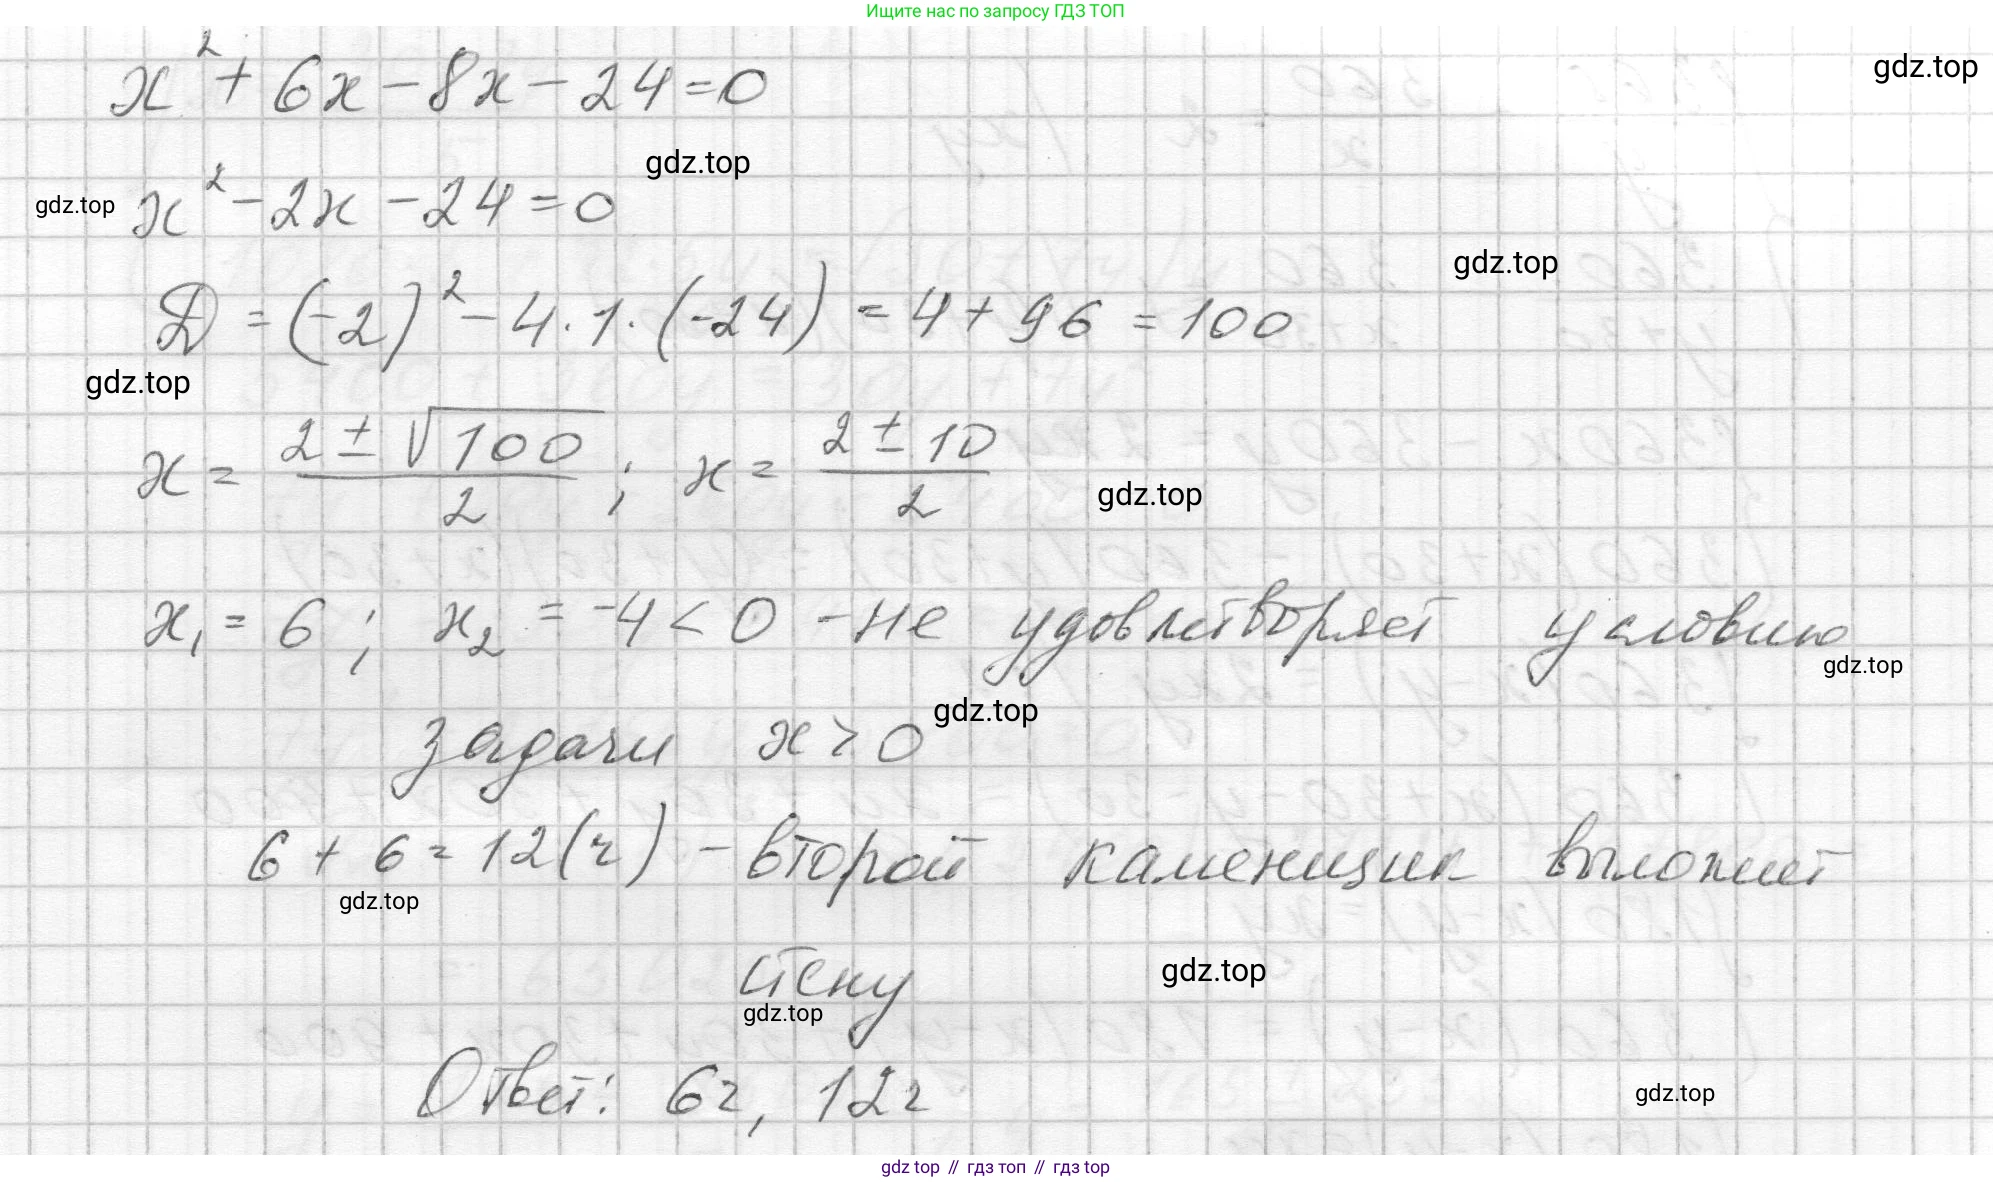 Ищите нас по запросу ГДЗ ТОП
x² + 6x - 8x - 24 = 0
gdz.top
gdz.top
gdz.top
x² - 2x - 24 = 0
gdz.top
D = (-2)² - 4 · 1 · (-24) = 4 + 96 = 100
gdz.top
x = (2 ± √100)/2 ; x = (2 ± 10)/2
gdz.top
x₁ = 6 ; x₂ = -4 < 0 - не удовлетворяет условию
gdz.top
gdz.top
задачи x > 0
6 + 6 = 12 (ч) - второй каменщик выложит
gdz.top
стену
gdz.top
gdz.top
Ответ: 6ч, 12ч
gdz.top
gdz top // гдз топ // гдз top